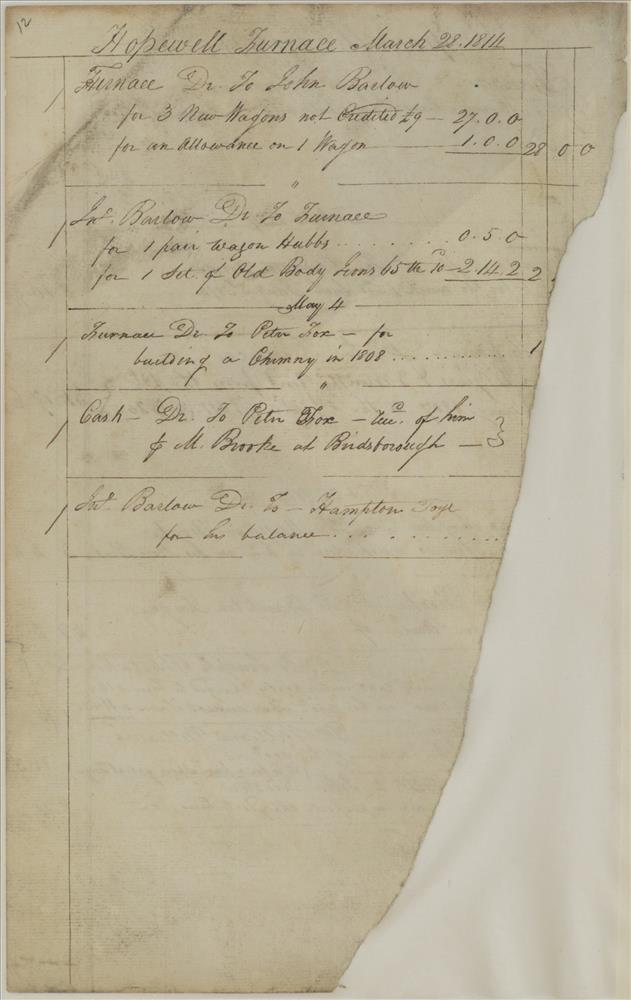 12
Hopewell Furnace March 28. 1814
Furnace Dr. To John Barlow
for 3 New Wagons not Credited £9 — 27.0.0
for an Allowance on 1 Wagon 1.0.0 28 0 0
"
Jno. Barlow Dr. To Furnace
for 1 pair wagon Hubbs . . . . . . . . 0.5.0
for 1 Set of Old Body Irons 65 lb 10 — 2.14.2 2
May 4
Furnace Dr. To Peter Fox — for
building a Chimny in 1808 . . . . . . . . . . . . 1
"
Cash — Dr. To Peter Fox — of him
M. Brooke at Birdsborough — 3
Jno. Barlow Dr. To — Hampton
for his balance . . . . . . . . . . . .